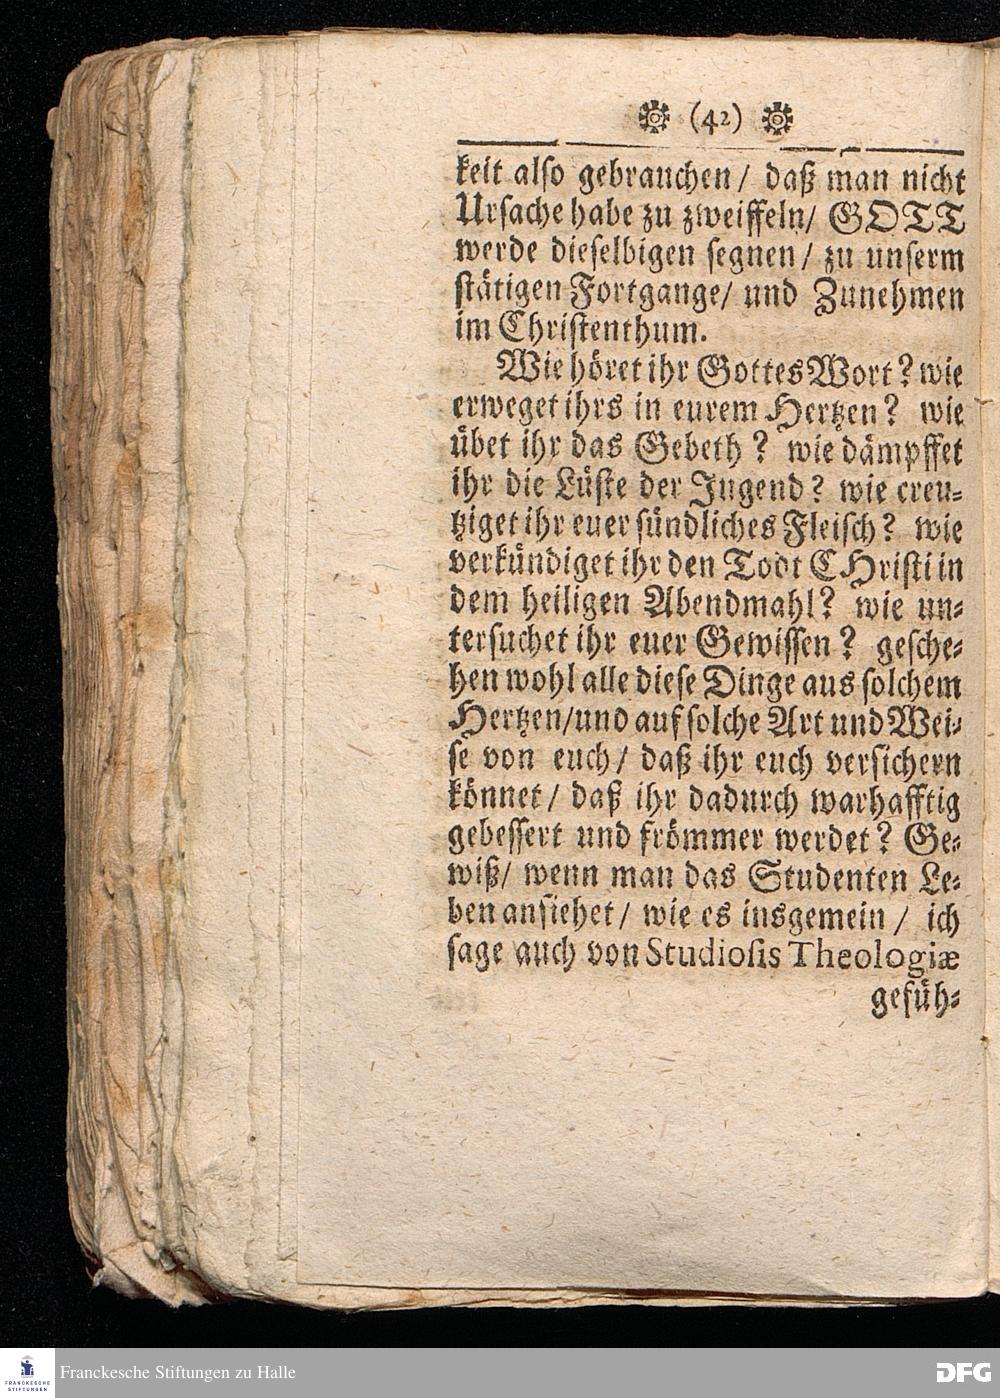 (42)
keit also gebrauchen / daß man nicht
Ursache habe zu zweiffeln / GOTT
werde dieselbigen segnen / zu unserm
stätigen Fortgange / und Zunehmen
im Christenthum.
Wie höret ihr Gottes Wort? wie
erweget ihrs in eurem Hertzen? wie
übet ihr das Gebeth? wie dämpffet
ihr die Lüste der Jugend? wie creu-
tziget ihr euer sündliches Fleisch? wie
verkündiget ihr den Todt CHristi in
dem heiligen Abendmahl? wie un-
tersuchet ihr euer Gewissen? gesche-
hen wohl alle diese Dinge aus solchem
Hertzen / und auf solche Art und Wei-
se von euch / daß ihr euch versichern
könnet / daß ihr dadurch warhafftig
gebessert und frömmer werdet? Ge-
wiß / wenn man das Studenten Le-
ben ansiehet / wie es insgemein / ich
sage auch von Studiosis Theologiæ
gefüh-
FRANCKESCHE
STIFTUNGEN
Franckesche Stiftungen zu Halle
DFG